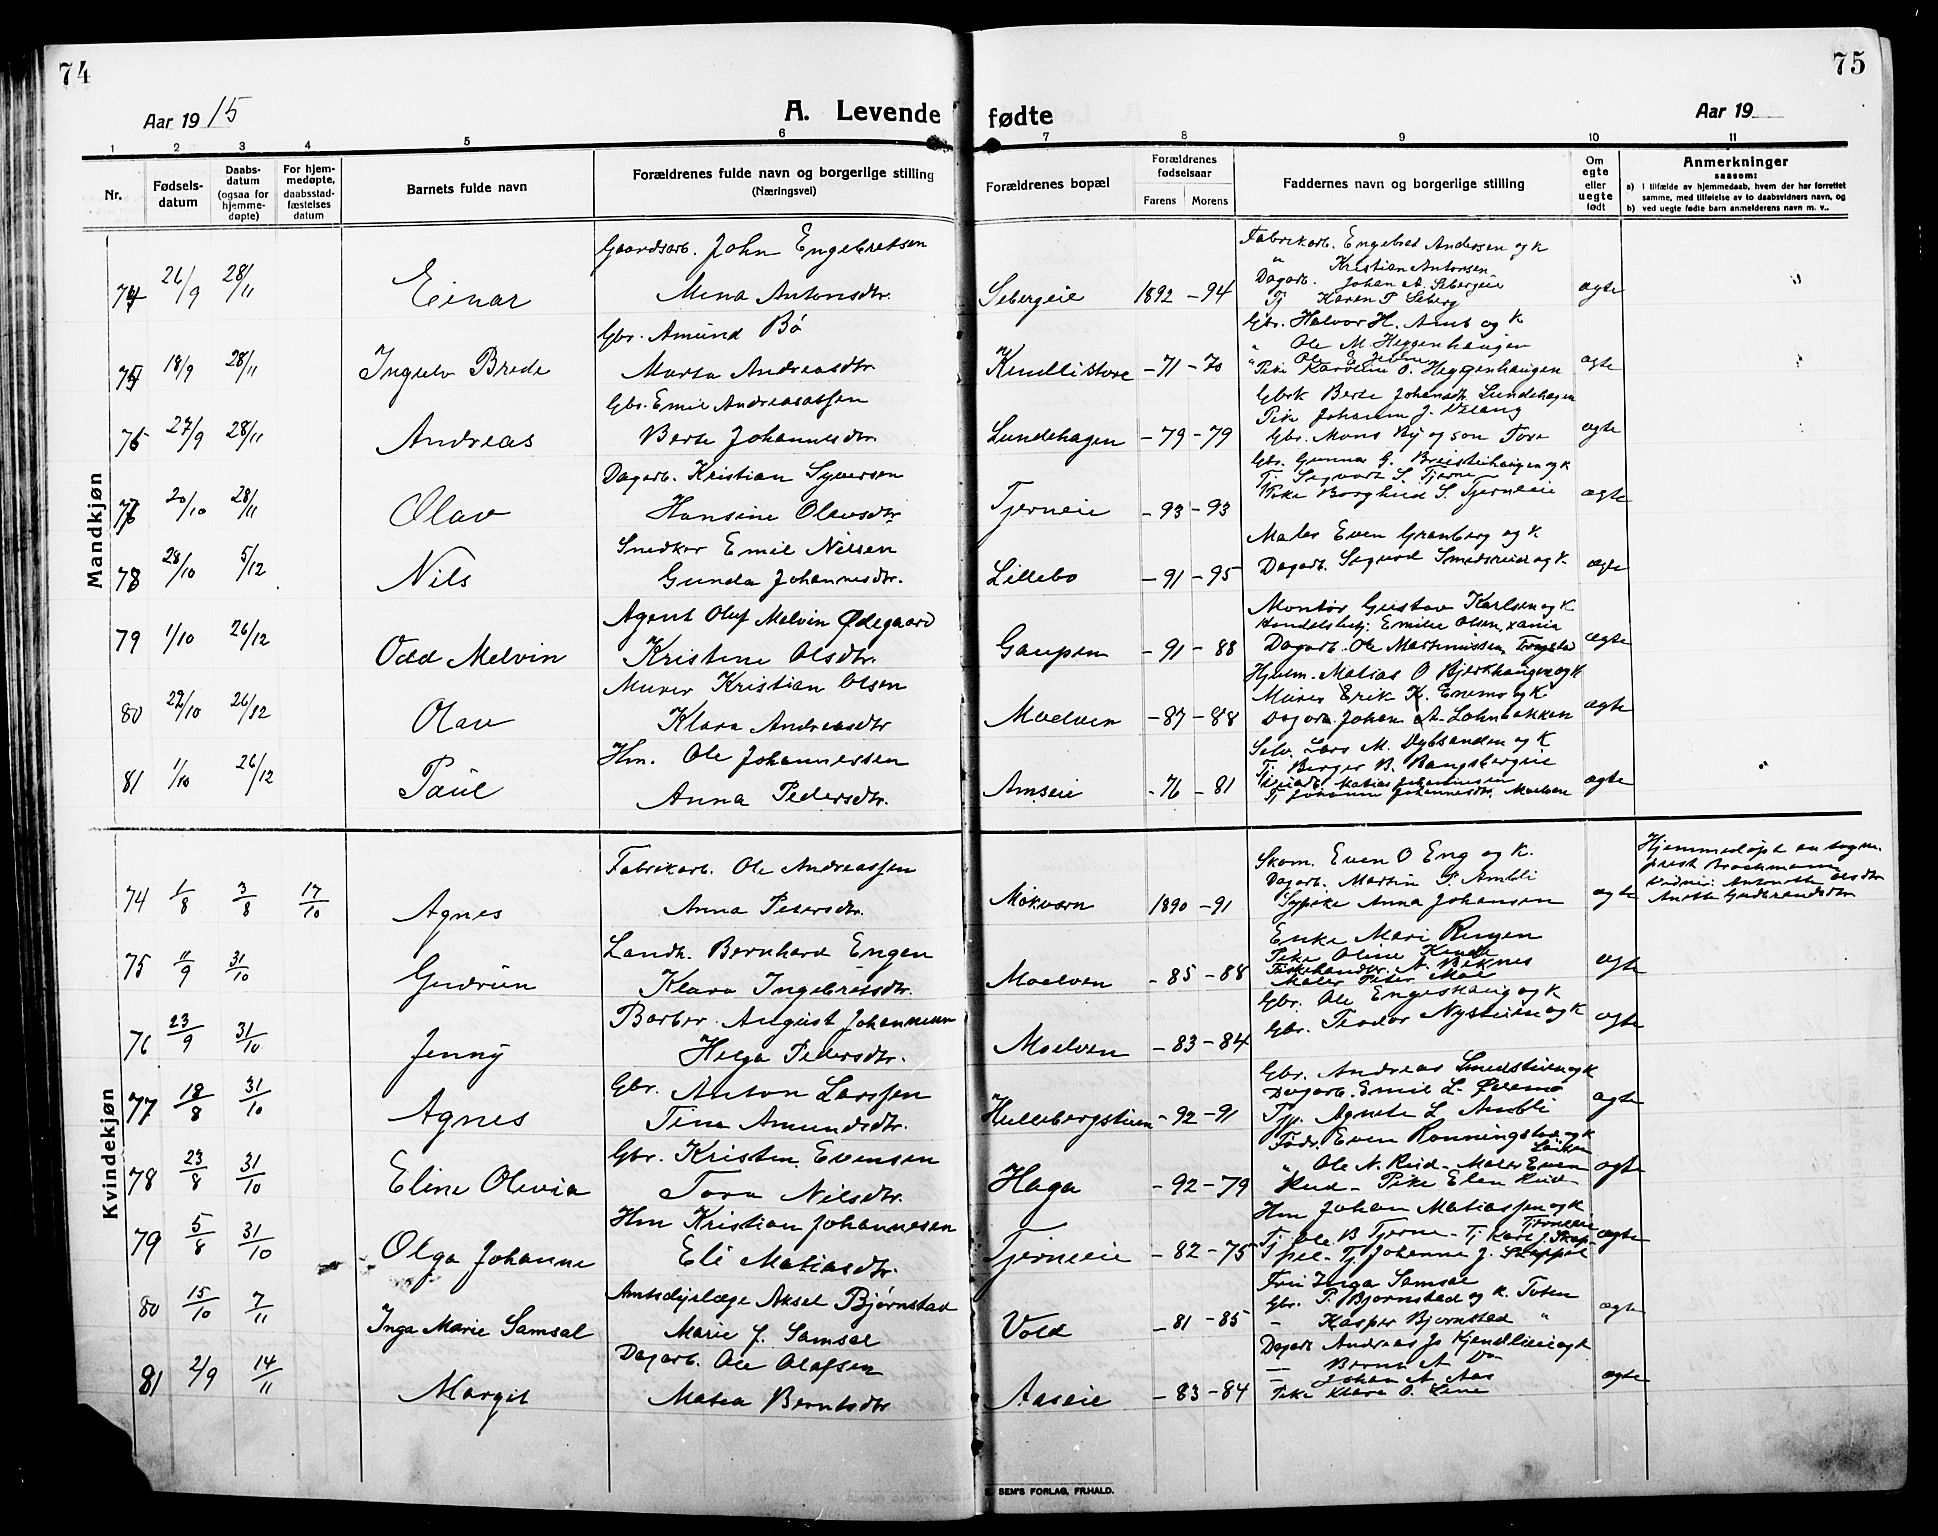 74
75
Aar 1915
A. Levende fødte
Aar 19
1 2 3 4 5 6 7 8 9 10 11
Nr.
Fødsels-
datum
Daabs-
datum
(ogsaa for
hjemme-
døpte)
For hjem-
medøpte,
daabsstad-
fæstelses
datum
Barnets fulde navn
Forældrenes fulde navn og borgerlige stilling
(Næringsvei)
Forældrenes bopæl
Forældrenes
fødselsaar
Farens Morens
Faddernes navn og borgerlige stilling
Om
egte
eller
uegte
født
Anmerkninger
saasom:
a) i tilfælde av hjemmedaab, hvem der har forrettet
samme, med tilføielse av to daabsvidners navn, og
b) ved uegte fødte barn anmelderens navn m. v..
Mandkjøn
74 26/9 28/11 Einar
Gaardsarb. John Engebretsen
Mina Antonsdtr.
Sebergeie 1892 - 94
Fabrikarb. Engebret Andersen og k
" Kristian Antonsen
Dagarb. Johan A. Sebergeie
Tj Karen P. Seberg
egte
75 18/9 28/11 Ingulv Brede
Gbr. Amund Bø
Marta Andreasdtr.
Kindlistore - 71 - 70
Gbr. Halvor H. Amb og k
" Ole M. Heggenhaugen
" Ole E. Jevne
Pike Karoline O. Heggenhaugen
egte
76 27/9 28/11 Andreas
Gbr. Emil Andreasassen
Berte Johannesdtr.
Lundehagen - 79 - 79
Gbrk Berte Johansdtr Lundehagen
Pike Johanna J.
Gbr. Mons By og son Tore
egte
77 20/10 28/11 Olav
Dagarb. Kristian Syversen
Hansine Olavsdtr
Tjerneie - 93 - 93
Gbr. Gunnar G. Breistiehaugen og k
Tj. Sigvart S. Tjerne
Pike Borghild S. Tjerneie
egte
78 28/10 5/12 Nils
Snedker Emil Nilsen
Gunda Johannesdtr.
Lillebo - 91 - 95
Maler Even Granberg og k.
Dagarb. Sigurd Smedsrud og k.
egte
79 1/10 26/12 Odd Melvin
Agent Oluf Melvin Ødegaard
Kristine Olsdtr.
Gaupen - 91 - 88
Montør Gustav Karlsen og k
Handelsbetj. Emilie Olsen, Xania
Dagarb. Ole Martinussen, Trøgstad
egte
80 22/10 26/12 Olav
Murer Kristian Olsen
Klara Andreasdtr
Moelven - 87 - 88
Hjulm. Matias O Bjerkhaugen og k
Murer Erik K. Enemo og k
Dagarb. Johan A. Lohnbakken
egte
81 1/10 26/12 Paul
Hm. Ole Johannessen
Anna Pedersdtr.
Amseie - 76 - 81
Selv. Lars M. Dybsanden og k
Tj Berger B. Rangsbergeie
Matias Johannesen
Tj Johanne Johannesdtr. Moelven
egte
Kvindekjøn
74 1/8 3/8 17/10 Agnes
Fabrikarb. Ole Andreassen
Anna Petersdtr.
Mokvarn 1890 - 91
Skom. Even O Eng og k.
Dagarb. Martin P. Ambli
Sypike Anna Johansen
egte
Hjemmedøpt av sogne-
prest Brochmann
Vidner: Antonette Olsdtr
Anette Gudbrandsdtr
75 11/9 31/10 Gudrun
Landh. Bernhard Engen
Klara Ingebretsdtr.
Moelven - 85 - 88
Enke Mari Ringen
Pike Oline Kindli
Fiskehandler A. Beknes
Maler Peter Moe
egte
76 23/9 31/10 Jenny
Barber August Johannessen
Helga Pedersdtr.
Moelven - 83 - 84
Gbr. Ole Engeskaug og k
Gbr. Teodor Nystuen og k
egte
77 18/8 31/10 Agnes
Gbr. Anton Larssen
Tina Amundsdtr.
Hullebergstuen - 92 - 91
Gbr. Andreas Smedstuen og k
Dagarb. Emil L. Øvremo
Tjp. Agnete L Ambli
egte
78 23/8 31/10 Eline Olivia
Gbr. Kristen Evensen
Tora Nilsdtr.
Haga - 92 - 79
Føder. Even Ronningstad og k
" Ole N. Rud - Maler Even
Rud - Pike Elen Rud
egte
79 5/8 31/10 Olga Johanne
Hm Kristian Johannesen
Eli Matiasdtr.
Tjerneie - 82 - 75
Hm Johan Matiassen og k
Tjerneeie
Tj Ole B Tjerne - Tj Karl J. Skap-
pel - Tj. Johanne J. Skappel
egte
80 15/10 7/11 Inga Marie Samsal
Amtsdyrlæge Aksel Bjørnstad
Marie J. Samsal
Vold - 81 - 85
Fru Inga Samsal
Gbr. P. Bjørnstad og k. Toten
- Kasper Bjørnstad "
egte
81 2/9 14/11 Margit
Dagarb. Ole Olafsen
Matea Berntsdtr
Aaseie - 83 - 84
Dagarb Andreas Jo Kjendlieie og k
— Bernt A Do
— Johan A Aas
Pike Klara O. Lene
egte
SEM'S FORLAG, FR.HALD.